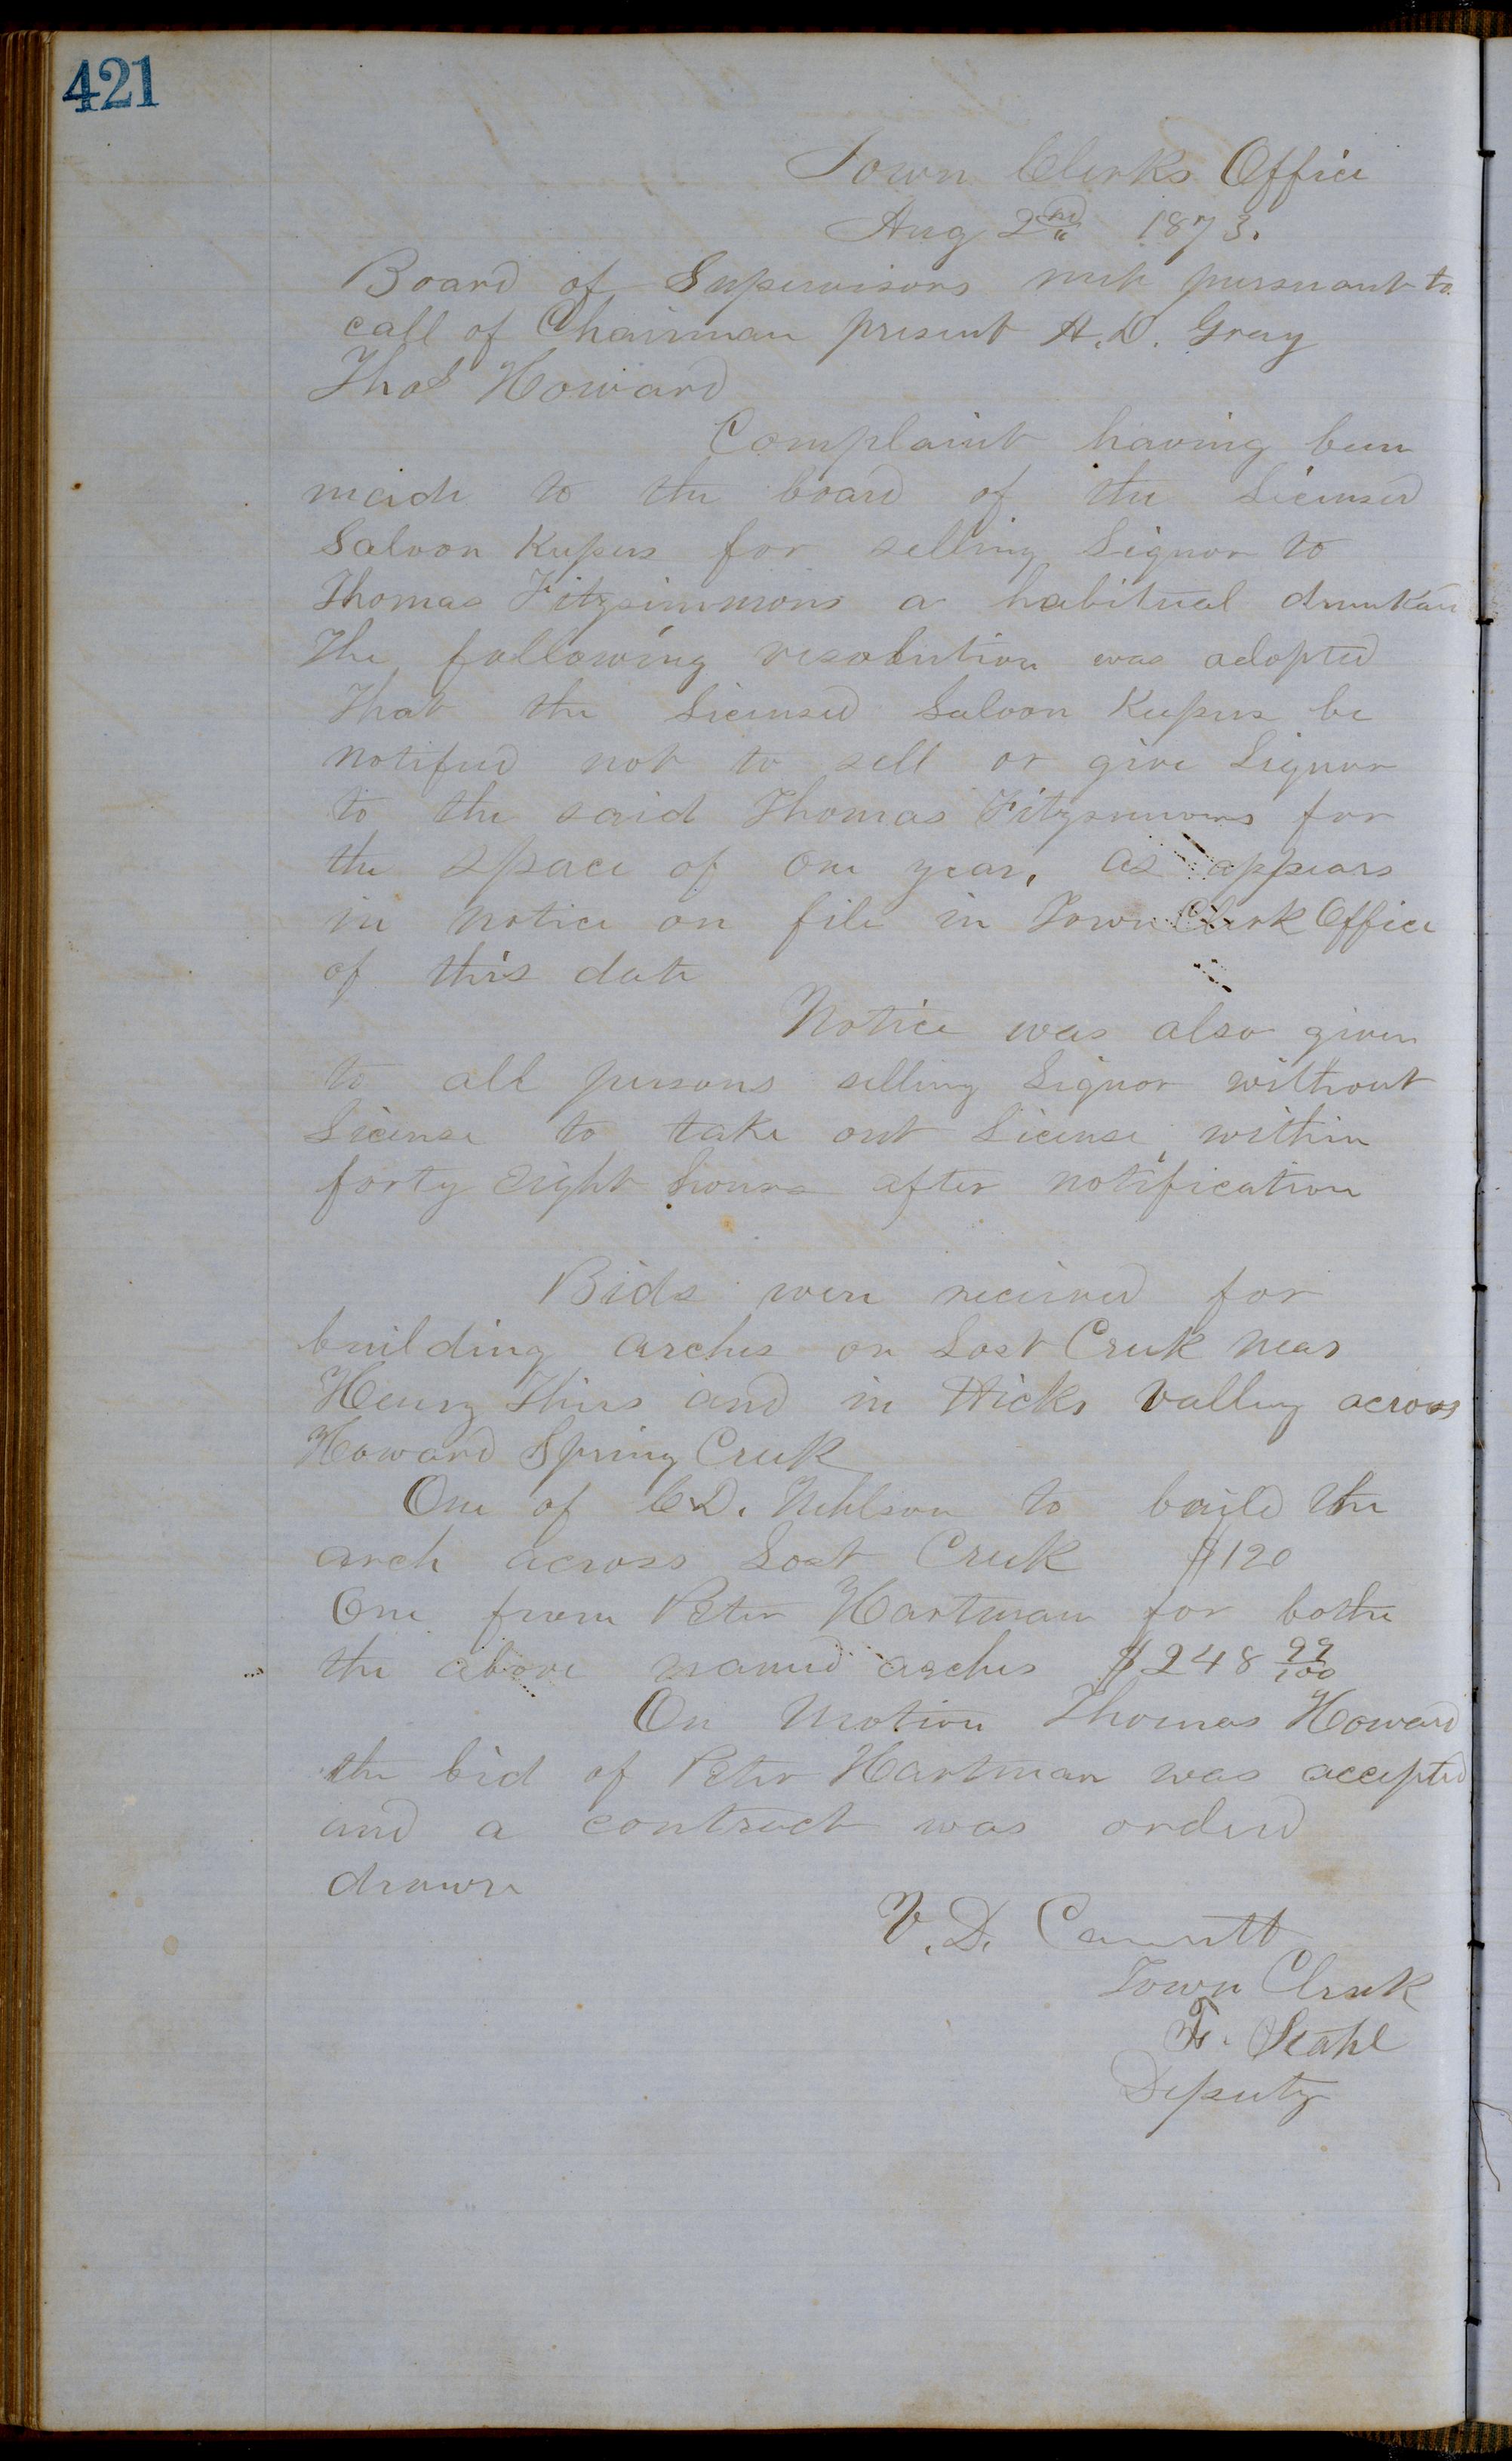 421
Town Clerks Office
Aug 2nd 1873.
Board of Supervisors met pursuant to
call of Chairman present A.D. Gray
Thos Howard
Complaint having been
made to the board of the Licensed
Saloon Keepers for selling Liquor to
Thomas Fitzsimmons a habitual drunkard
The following resolution was adopted
That the Licensed Saloon Keepers be
notified not to sell or give Liquor
to the said Thomas Fitzsimmons for
the space of one year, as appears
in notice on file in Town Clerk Office
of this date
Notice was also given
to all persons selling Liquor without
License to take out License within
forty eight hours after notification
Bids were received for
building arches on Lost Creek near
Henry Thirs and in Hicks Valley across
Howard Spring Creek
One of C.D. Nehlson to build the
arch across Lost Creek $120
One from Peter Hartman for bothe
the above named arches $248 99/100
On Motion Thomas Howard
the bid of Peter Hartman was accepted
and a contract was orderd
drawn
V. D. 
Town Clerk
F. Stahl
Deputy